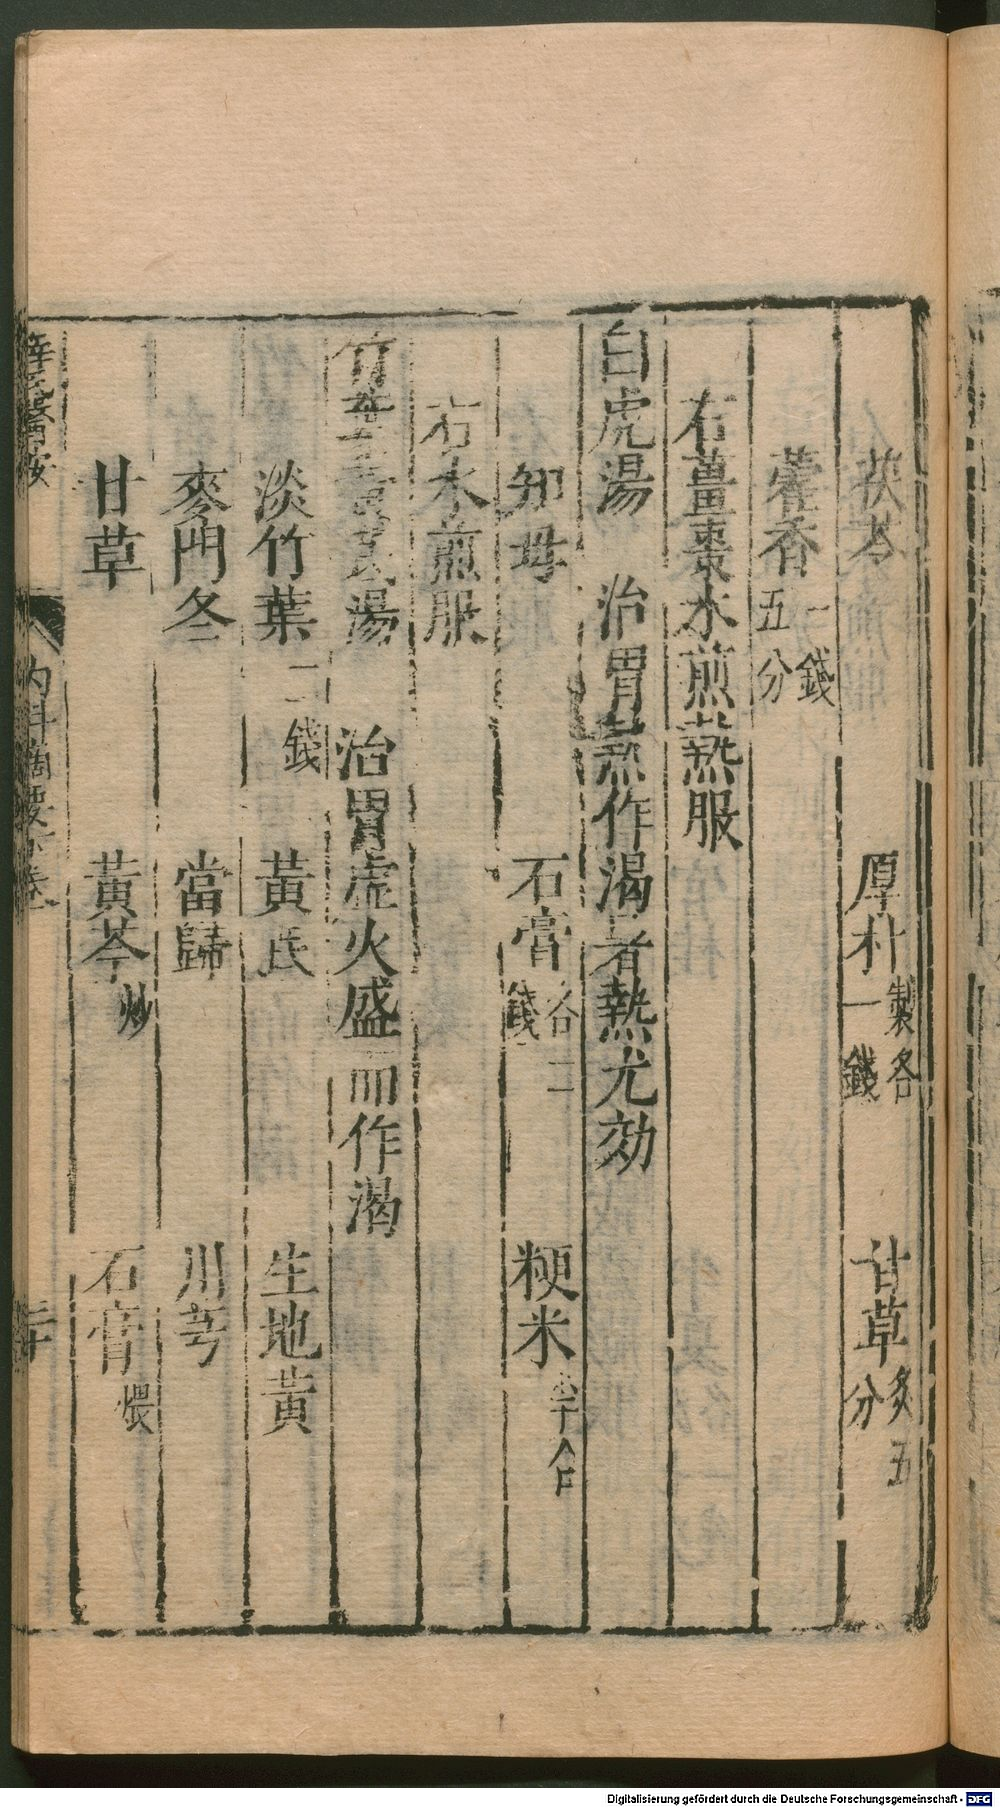 茯苓　厚朴製各一錢　甘草炙五分
藿香一錢五分
右薑棗水煎熱服
白虎湯　治胃熱作渴暑熱尤効
知母　石膏各二錢　粳米半合
右水煎服
竹葉黃芪湯　治胃虛火盛而作渴
淡竹葉二錢　黃芪　生地黃
麥門冬　當歸　川芎
甘草　黃芩炒　石膏煨
薛氏醫按　內科摘要下卷　二十
Digitalisierung gefördert durch die Deutsche Forschungsgemeinschaft - DFG